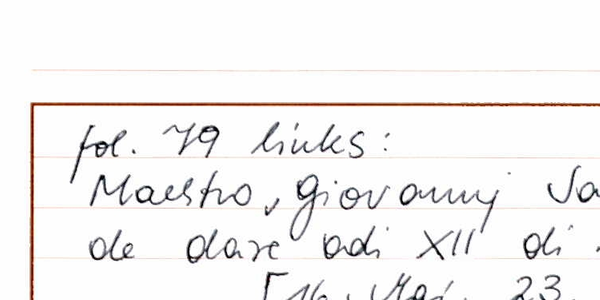 fol. 79 links:
Maestro, Giovannj Sa
de dare adi XII di
[16. Mai. 23.